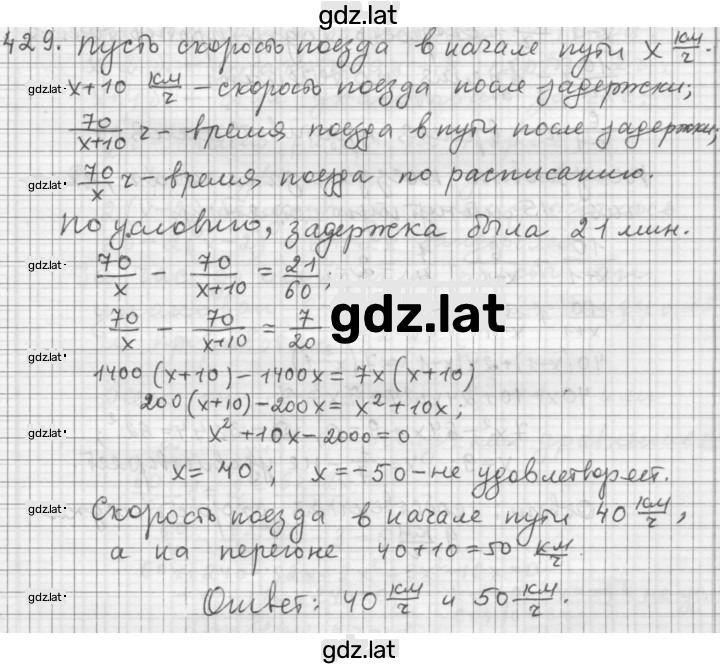 gdz.lat
429. Пусть скорость поезда в начале пути x км/ч.
gdz.lat x+10 км/ч – скорость поезда после задержки;
70/(x+10) ч – время поезда в пути после задержки;
gdz.lat 70/x ч – время поезда по расписанию.
По условию, задержка была 21 мин.
gdz.lat 70/x – 70/(x+10) = 21/60;
70/x – 70/(x+10) = 7/20
gdz.lat
gdz.lat
1400(x+10) – 1400x = 7x(x+10)
200(x+10) – 200x = x² + 10x;
gdz.lat x² + 10x – 2000 = 0
x = 40; x = –50 – не удовлетворяет.
gdz.lat Скорость поезда в начале пути 40 км/ч,
а на перегоне 40+10=50 км/ч.
gdz.lat Ответ: 40 км/ч и 50 км/ч.
gdz.lat